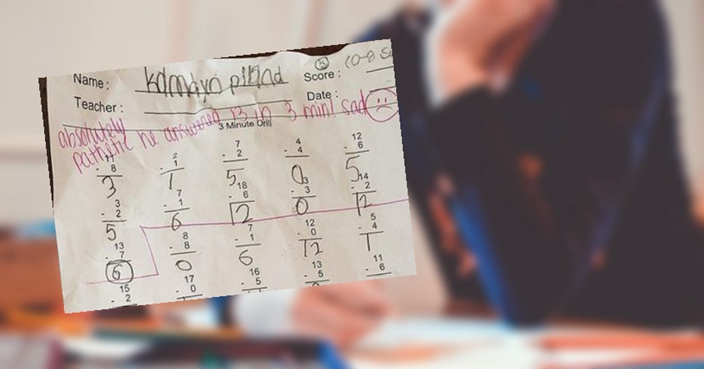 Name: Kamdyn Piland Score: (0-8 S
Teacher: Date:
absolutely
pathetic he answered 13 in 3 min! sad
3 Minute Drill
11 2 7 4 12
- 8 - 1 - 2 - 4 - 6
3 1 5 0 5
3 7 18 3 14
- 2 - 1 - 6 - 3 - 2
5 6 12 0 12
13 8 7 12 5
- 7 - 8 - 1 - 0 - 4
6 0 6 12 1
15 17 16 13 11
- 2 - 0 - 5 - 5 - 6